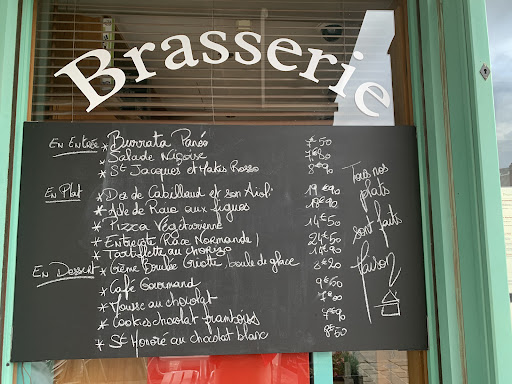 Brasserie
En Entrée * Burrata Panée 7€50
* Salade Niçoise 7€80
* St Jacques et Makis Rosso 8€90
En Plat * Dos de Cabillaud et son Aïoli 19€90
* Aile de Raie aux figues 18€90
* Pizza Végétarienne 14€50
* Entrecôte (Race Normande) 24€50
* Tartiflette au chorizo 14€90
En Dessert * Crème Brulée Griotte, boule de glace 8€20
* Café Gourmand 9€50
* Mousse au chocolat 7€00
* Cookies chocolat framboises 7€90
* St Honoré au chocolat blanc 8€50
Tous nos
plats
sont faits
maison